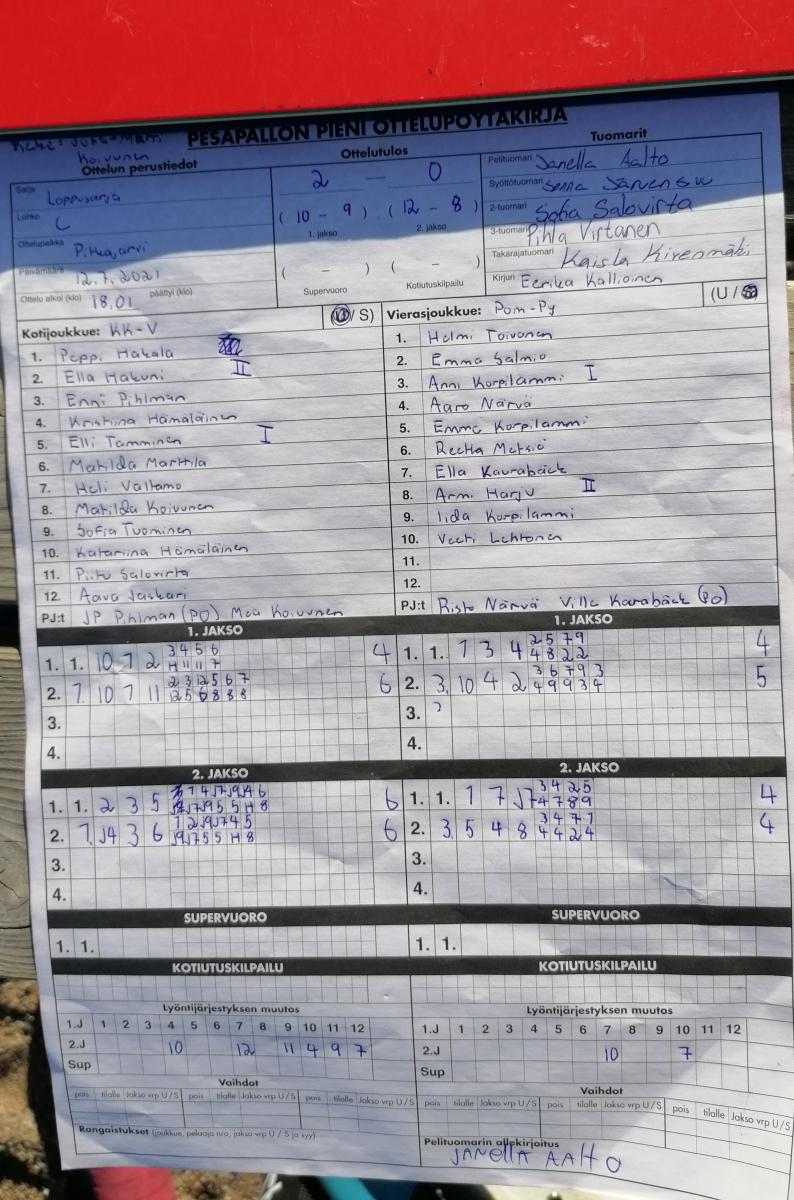 Koivunen
PESÄPALLON PIENI OTTELUPÖYTÄKIRJA
Ottelun perustiedot
Sarja Loppusarja
Lohko C
Ottelupaikka Pitkäjärvi
Päivämäärä 12.7.2021
Ottelu alkoi (klo) 18.01 päättyi (klo)
Ottelutulos
2 — 0
(10 - 9) (12 - 8)
1. jakso 2. jakso
( - ) ( - )
Supervuoro Kotiutuskilpailu
Tuomarit
Pelituomari Janella Aalto
Syöttötuomari Senna
2-tuomari Sofia Salovirta
3-tuomari Pihla Virtanen
Takarajatuomari Kaisla Kivenmäki
Kirjuri Eerika Kallioinen
Kotijoukkue: KK-V (U/S)
1. Peppi Hakala
2. Ella Hakuni II
3. Enni Pihlman
4. Kristiina Hämäläinen
5. Elli Tamminen I
6. Matilda Marttila
7. Heli Valtamo
8. Matilda Koivunen
9. Sofia Tuominen
10. Katariina Hämäläinen
11. Piitu Salovirta
12. Aava Jaskari
PJ:t JP Pihlman (PO) Mea Koivunen
Vierasjoukkue: Pom-Py (U/S)
1. Helmi Toivonen
2. Emma Salmio
3. Anni Korpilammi I
4. Aaro Närvä
5. Emma Korpilammi
6. Reetta Metsiö
7. Ella Kaurabäck
8. Armi Harju II
9. Iida Korpilammi
10. Veeti Lehtonen
11.
12.
PJ:t Risto Närvä Ville Karabäck (PO)
1. JAKSO
1. 1. 10 7 2 3 4 5 6 4
H 11 11 7
2. 7. 10 7 11 2 3 12 5 6 7 6
12 5 6 8 8 8
3.
4.
1. JAKSO
1. 1. 7 3 4 2 5 7 9 4
4 8 2 2
2. 3. 10 4 2 3 6 7 9 3 5
4 9 9 3 4
3.
4.
2. JAKSO
1. 1. 2 3 5 6
2. 7. J4 3 6 6
3.
4.
2. JAKSO
1. 1. 1 7 J7 3 4 2 5 4
4 7 8 9
2. 3. 5 4 8 3 4 7 7 4
4 4 2 4
3.
4.
SUPERVUORO
1. 1.
SUPERVUORO
1. 1.
KOTIUTUSKILPAILU
KOTIUTUSKILPAILU
Lyöntijärjestyksen muutos
1.J 1 2 3 4 5 6 7 8 9 10 11 12
2.J 10 12 11 4 9 7
Sup
Lyöntijärjestyksen muutos
1.J 1 2 3 4 5 6 7 8 9 10 11 12
2.J 10 7
Sup
Vaihdot
pois tilalle Jakso vrp U/S pois tilalle Jakso vrp U/S pois tilalle Jakso vrp U/S
Vaihdot
pois tilalle Jakso vrp U/S pois tilalle Jakso vrp U/S pois tilalle Jakso vrp U/S
Rangaistukset (joukkue, pelaaja nro, jakso vrp U / S ja syy)
Pelituomarin allekirjoitus
JANELLA AALTO